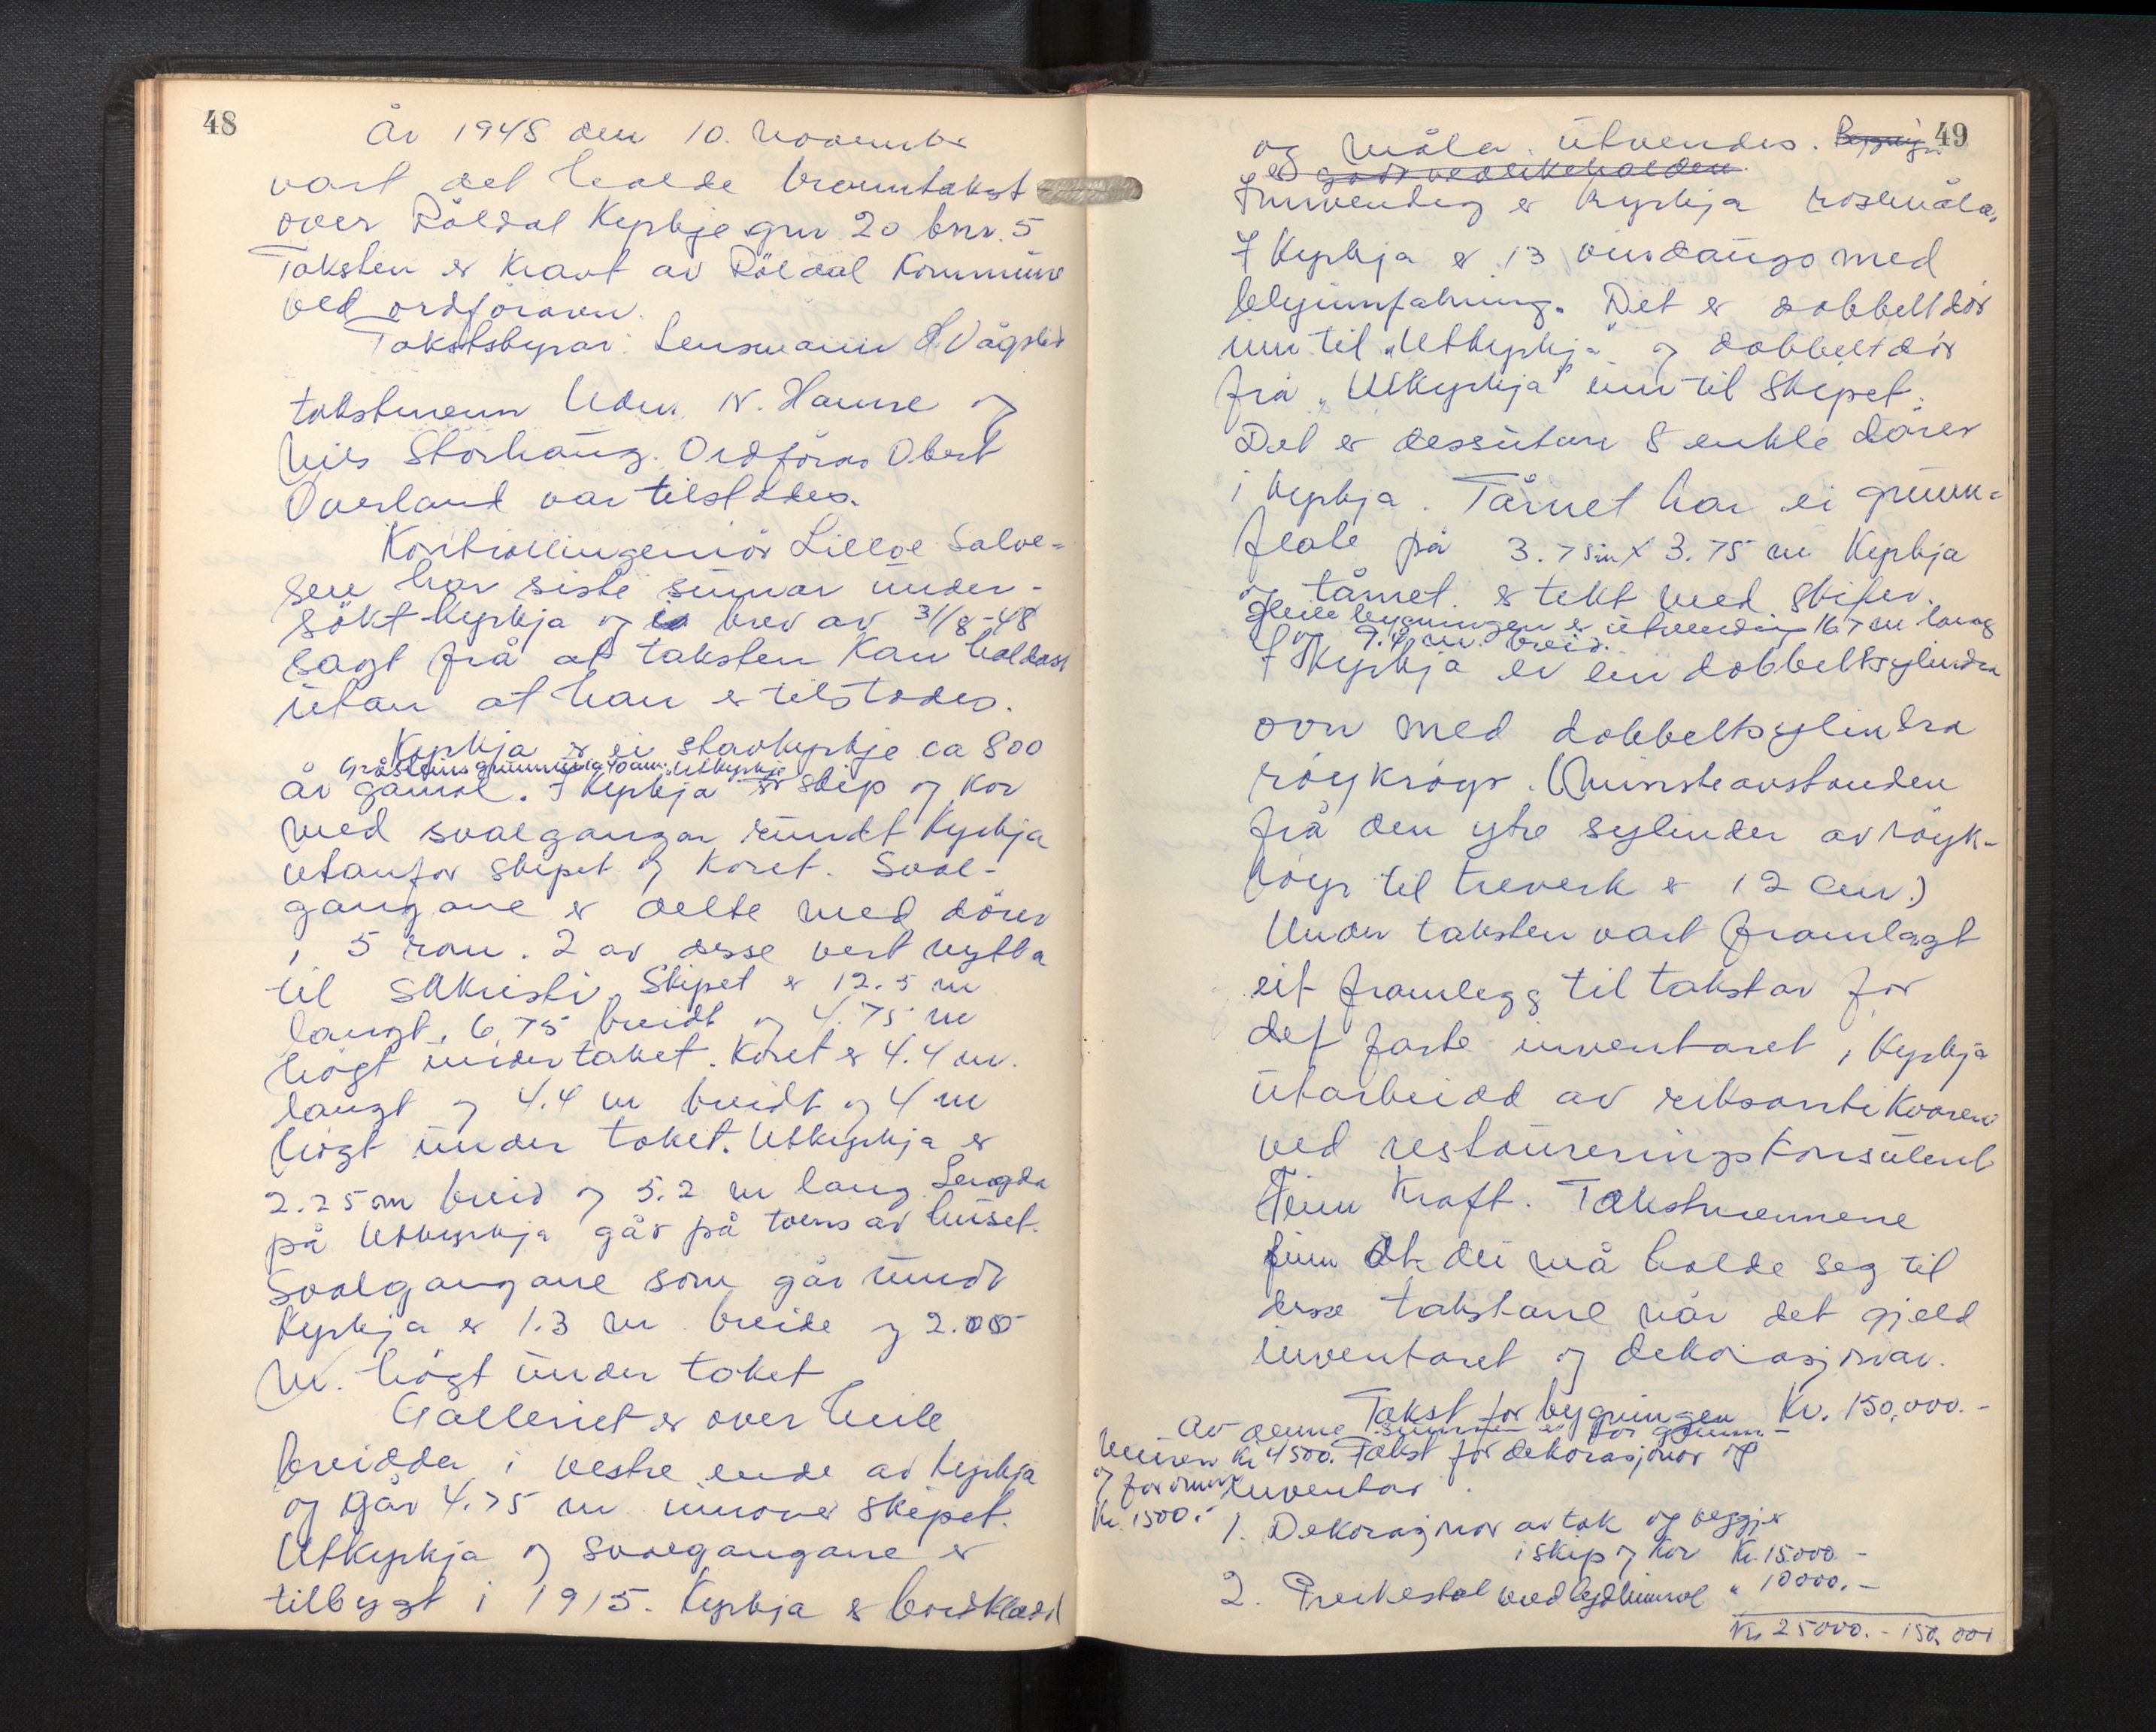 48
År 1948 den 10. november
vart det halde branntakst
over Röldal Kyrkje gnr 20 bnr. 5
Taksten er kravt av Röldal Kommune
ved ordföraren.
Takststyrar: Lensmann H. Vågslid
takstmenn N. Hamre og
Nils Storhaug. Ordförar Obert
Overland var tilstades.
Kontrollingeniör Lilloe Salve-
sen har siste sumar under-
sökt kyrkja og i brev av 31/8-48
sagt frå at taksten kan haldast
utan at han er tilstades.
Kyrkja er ei stavkyrkje ca 800
Gråsteinsgrunnmur ca 40 cm. Utkyrkje
år gamal. I kyrkja er skip og kor
med svalgangar rundt kyrkja
utanfor skipet og koret. Sval-
gangane er delte med dörer
i 5 rom. 2 av desse vert nytta
til sakristi. Skipet er 12.5 m
langt, 6.75 breidt og 4.75 m
högt under taket. Koret er 4.4 m.
langt og 4.4 m breidt og 4 m
högt under taket. Utkyrkja er
2.25 m breid og 5.2 m lang. Lengda
på Utkyrkja går på tvers av huset.
Svalgangane som går rundt
Kyrkja er 1.3 m breide og 2.00
m. högt under taket
Galleriet er over heile
breidda i vestre ende av kyrkja
og går 4.75 m innover skipet.
Utkyrkja og svalgangane er
tilbygt i 1915. Kyrkja er bordkledd
49
og måla utvendes. Bygning
er godt vedlikehalden.
Innvendig er kyrkja rosemåla.
I kyrkja er 13 vindaugo med
blyinnfatning. Det er dobbelt dör
inn til "Utkyrkja" og dobbelt dör
frå "Utkyrkja" inn til skipet.
Det er dessutan 8 enkle dörer
i kyrkja. Tårnet har ei grunn-
flate på 3.75m X 3.75 m Kyrkja
og tårnet er tekt med skifer.
Heile bygningen er utvendig 16.7 m lang
og 9.4 m. breid.
I Kyrkja er ein dobbeltsylindra
ovn med dobbeltsylindra
röykröyr. (Minsteavstanden
frå den ytre sylinder av röyk-
röyr til treverk er 12 cm.)
Under taksten vart framlagt
eit framlegg til takstar for
det faste inventaret i Kyrkja
utarbeidd av riksantikvaren
ved restaureringskonsulent
Finn Kraft. Takstmennene
finn at dei må halde seg til
desse takstane når det gjeld
inventaret og dekorasjonar.
Takst for bygningen Kr. 150,000.-
Av denne summen er for grunn-
muren Kr 4500. Takst for dekorasjonar og
og for omn inventar.
Kr. 1500.-
1. Dekorasjonar av tak og veggjer
i skip og kor Kr. 15000.-
2. Preikestol med lydhimmel " 10000.-
Kr 25000.- 150,000